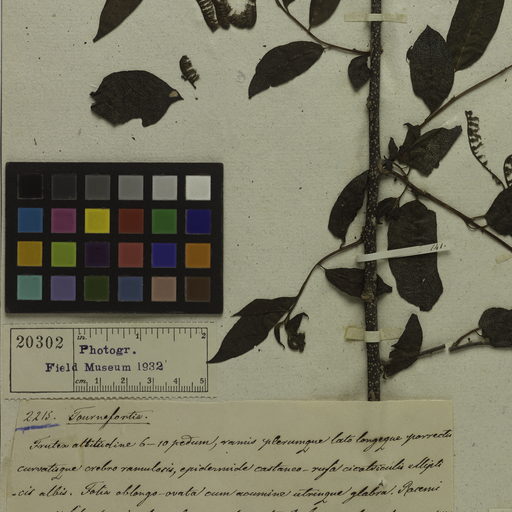 141.
20302
in. 1 2
Photogr.
Field Museum 1932
cm. 1 2 3 4 5
2215. Tournefortia.
Frutex altitudine 6-10 pedum, ramis plerumque late longeque porrectis
curvatisque crebro ramulosis, epidermide castaneo-rufa cicatriculis ellipti
-cis albis. Folia oblongo-ovata cum acumine utrinque glabra. Racemi